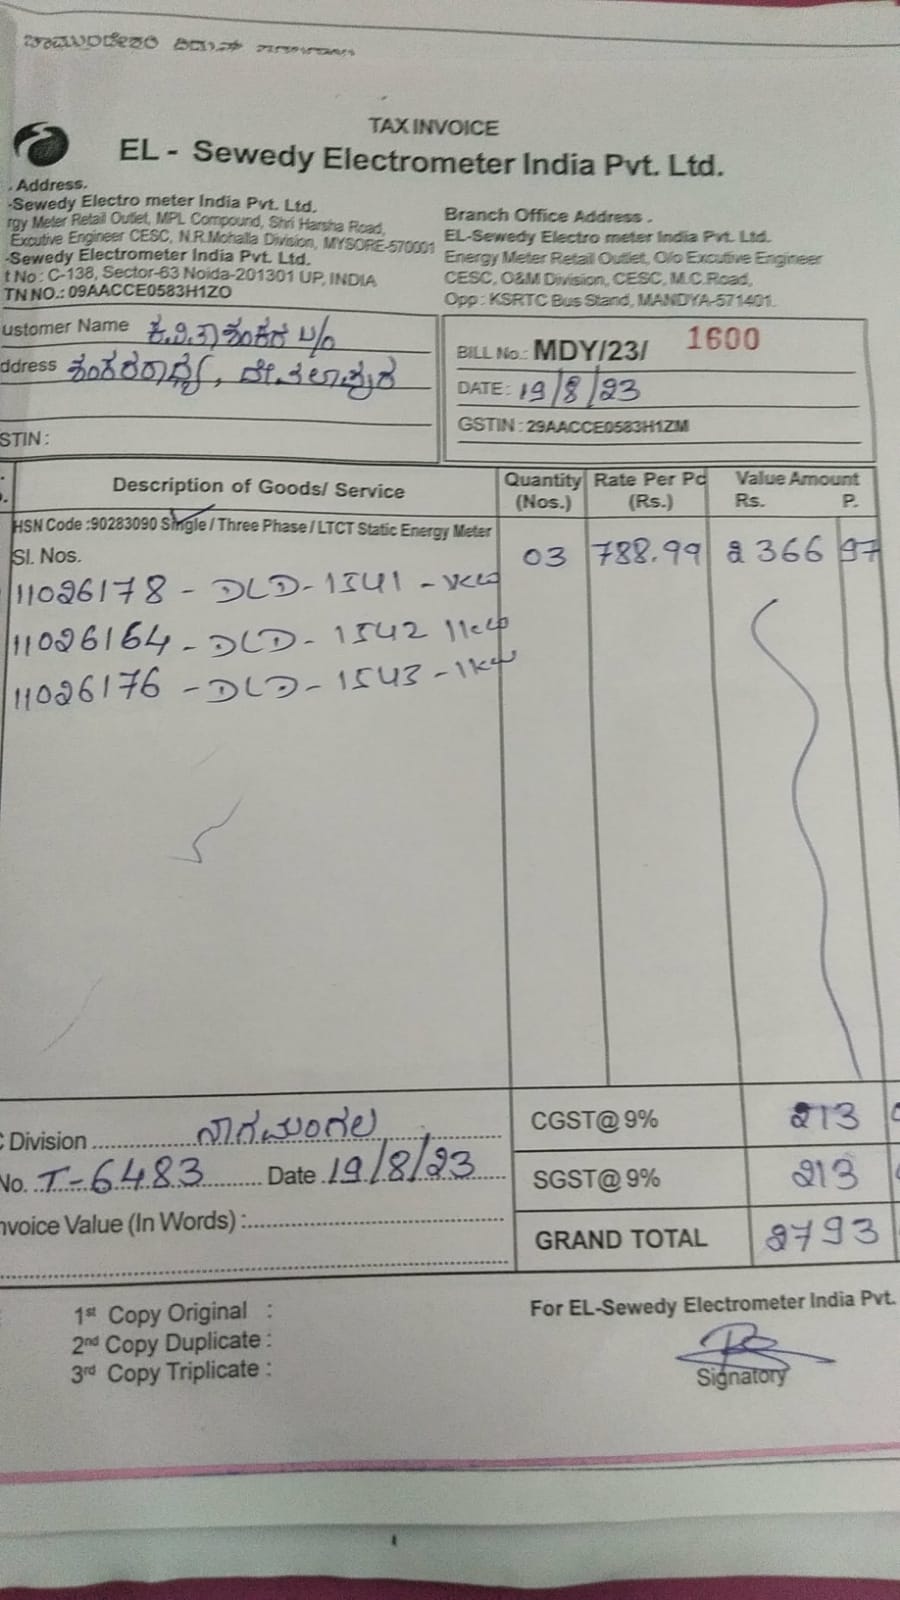 TAX INVOICE
EL - Sewedy Electrometer India Pvt. Ltd.
. Address.
-Sewedy Electro meter India Pvt. Ltd.
rgy Meter Retail Outlet, MPL Compound, Shri Harsha Road,
Excutive Engineer CESC, N.R.Mohalla Division, MYSORE-570001
-Sewedy Electrometer India Pvt. Ltd.
t No : C-138, Sector-63 Noida-201301 UP, INDIA
TN NO.: 09AACCE0583H1ZO
Branch Office Address .
EL-Sewedy Electro meter India Pvt. Ltd.
Energy Meter Retail Outlet, O/o Excutive Engineer
CESC, O&M Division, CESC, M.C.Road,
Opp : KSRTC Bus Stand, MANDYA-571401.
ustomer Name
ddress
STIN :
BILL No.: MDY/23/ 1600
DATE : 19/8/23
GSTIN : 29AACCE0583H1ZM
Description of Goods/ Service Quantity (Nos.) Rate Per Pc (Rs.) Value Amount Rs. P.
HSN Code :90283090 Single / Three Phase / LTCT Static Energy Meter
Sl. Nos. 03 788.99 2366 97
11026178 - DLD - 1541 - 1kw
11026164 - DLD - 1542 1kw
11026176 - DLD - 1543 - 1kw
CGST@ 9% 213
C Division ನಾಗಮಂಗಲ
No. T-6483 Date 19/8/23
SGST@ 9% 213
nvoice Value (In Words) :
GRAND TOTAL 2793
1st Copy Original :
2nd Copy Duplicate :
3rd Copy Triplicate :
For EL-Sewedy Electrometer India Pvt.
Signatory